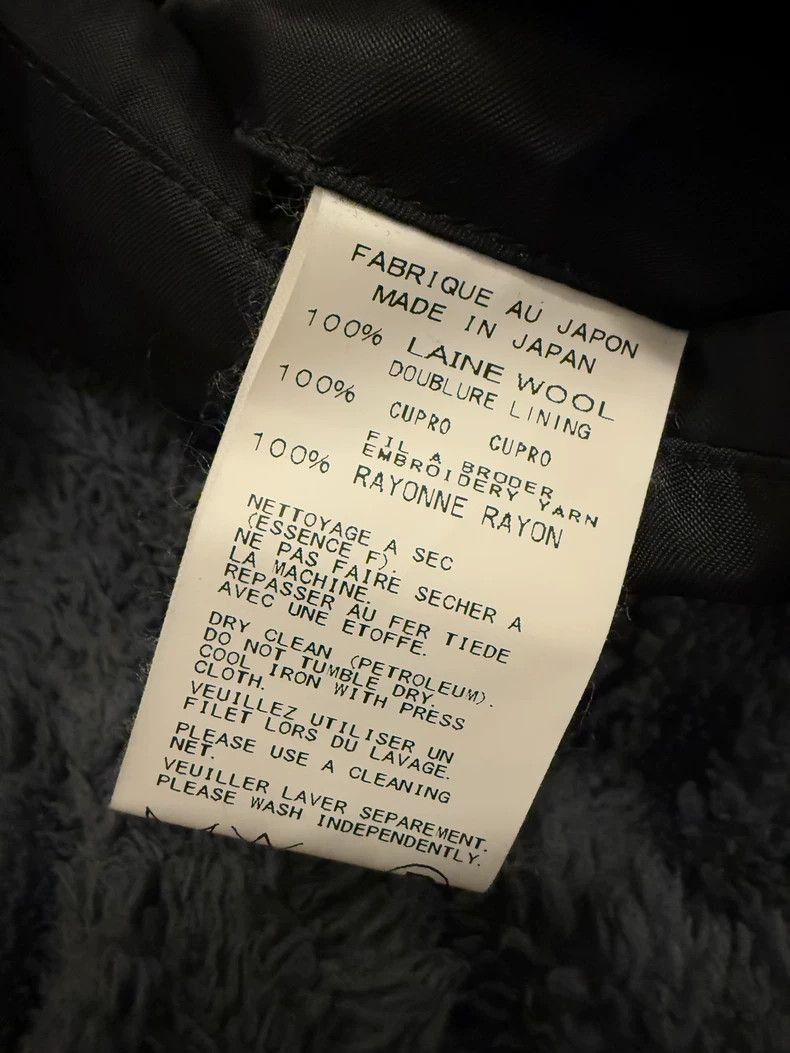 FABRIQUE AU JAPON
MADE IN JAPAN
100% LAINE WOOL
DOUBLURE LINING
100% CUPRO CUPRO
FIL A BRODER
EMBROIDERY YARN
100% RAYONNE RAYON
NETTOYAGE A SEC
(ESSENCE F).
NE PAS FAIRE SECHER A
LA MACHINE.
REPASSER AU FER TIEDE
AVEC UNE ETOFFE.
DRY CLEAN (PETROLEUM).
DO NOT TUMBLE DRY.
COOL IRON WITH PRESS
CLOTH.
VEUILLEZ UTILISER UN
FILET LORS DU LAVAGE.
PLEASE USE A CLEANING
NET.
VEUILLER LAVER SEPAREMENT.
PLEASE WASH INDEPENDENTLY.